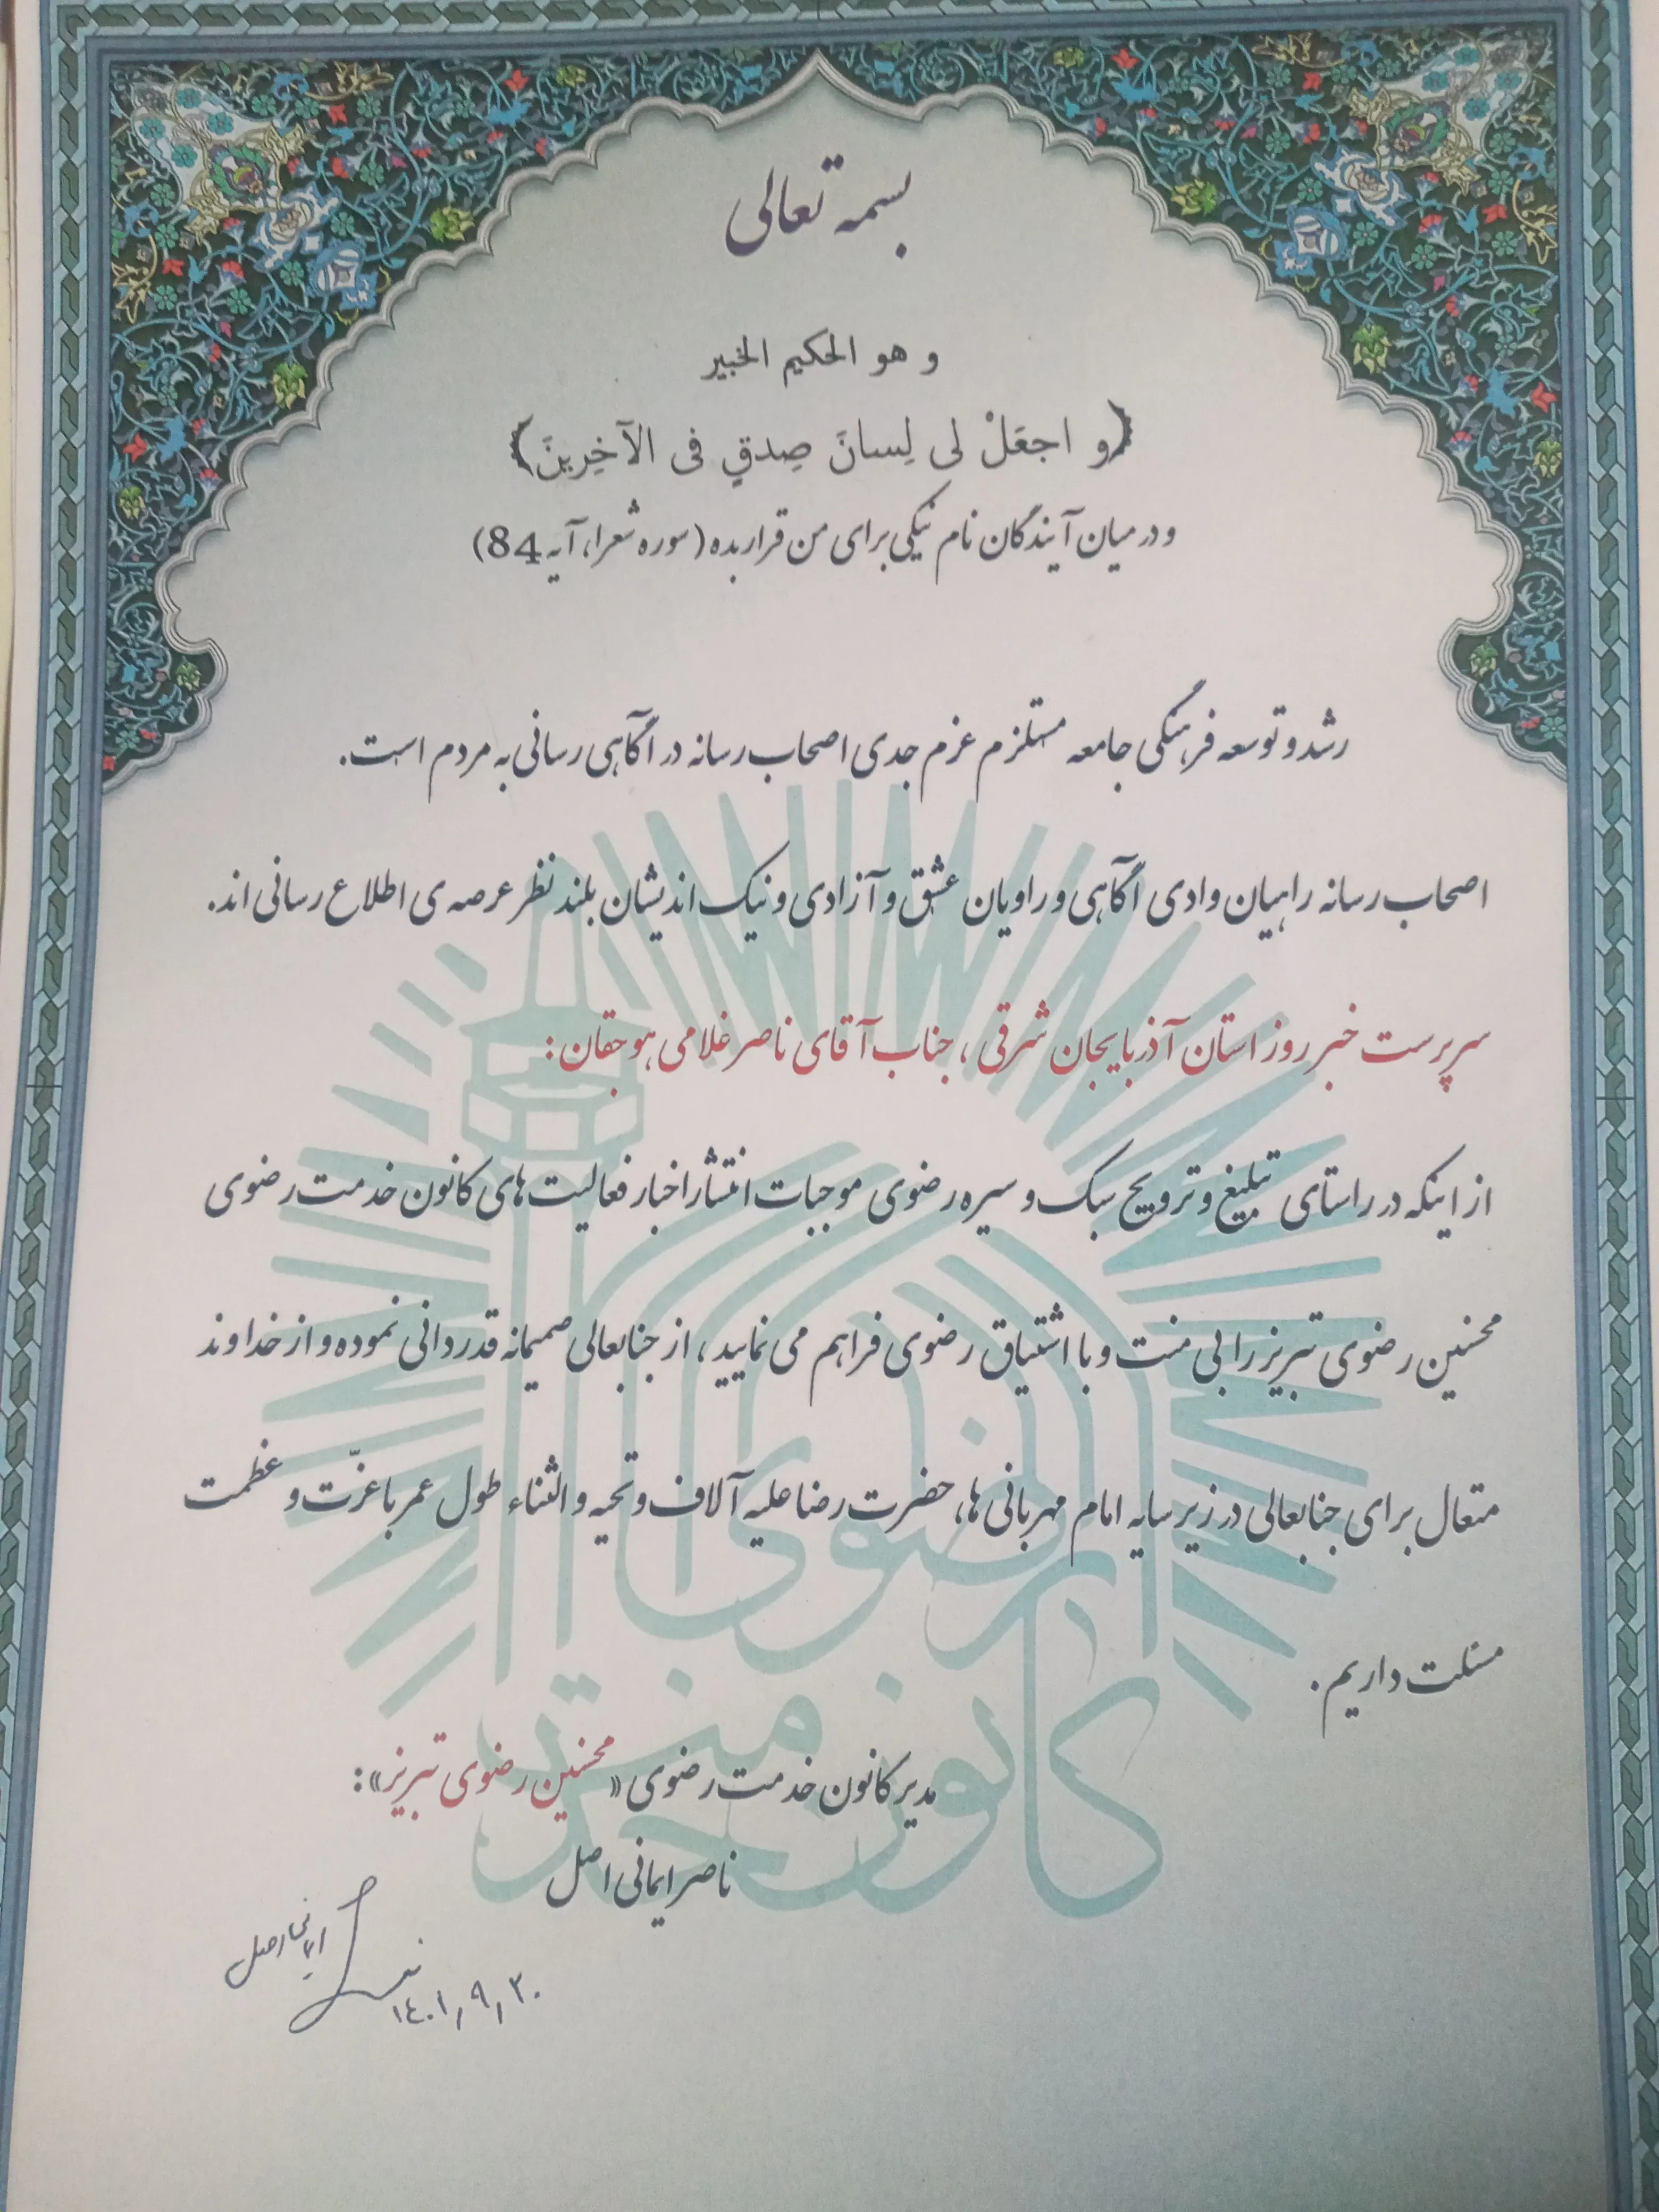 بسمه تعالی
و هو الحکیم الخبیر
﴿و اجعَلْ لی لِسانَ صِدقٍ فی الآخِرینَ﴾
و در میان آیندگان نام نیکی برای من قرار بده (سوره شعرا، آیه 84)
رشد و توسعه فرهنگی جامعه مستلزم عزم جدی اصحاب رسانه در آگاهی رسانی به مردم است.
اصحاب رسانه راهیان وادی آگاهی و راویان عشق و آزادی و نیک اندیشان بلند نظر عرصه ی اطلاع رسانی اند.
سرپرست خبر روز استان آذربایجان شرقی، جناب آقای ناصر غلامی هوجقان:
از اینکه در راستای تبلیغ و ترویج سبک و سیره رضوی موجبات انتشار اخبار فعالیت های کانون خدمت رضوی
محسنین رضوی تبریز را بی منت و با اشتیاق رضوی فراهم می نمایید، از جنابعالی صمیمانه قدردانی نموده و از خداوند
متعال برای جنابعالی در زیر سایه امام مهربانی ها، حضرت رضا علیه آلاف و تحیه و الثناء طول عمر با عزّت و عظمت
مسئلت داریم.
مدیر کانون خدمت رضوی «محسنین رضوی تبریز»:
ناصر ایمانی اصل
ایمانی اصل
۱٤۰۱,۹,۳۰
کانون خدمت رضوی